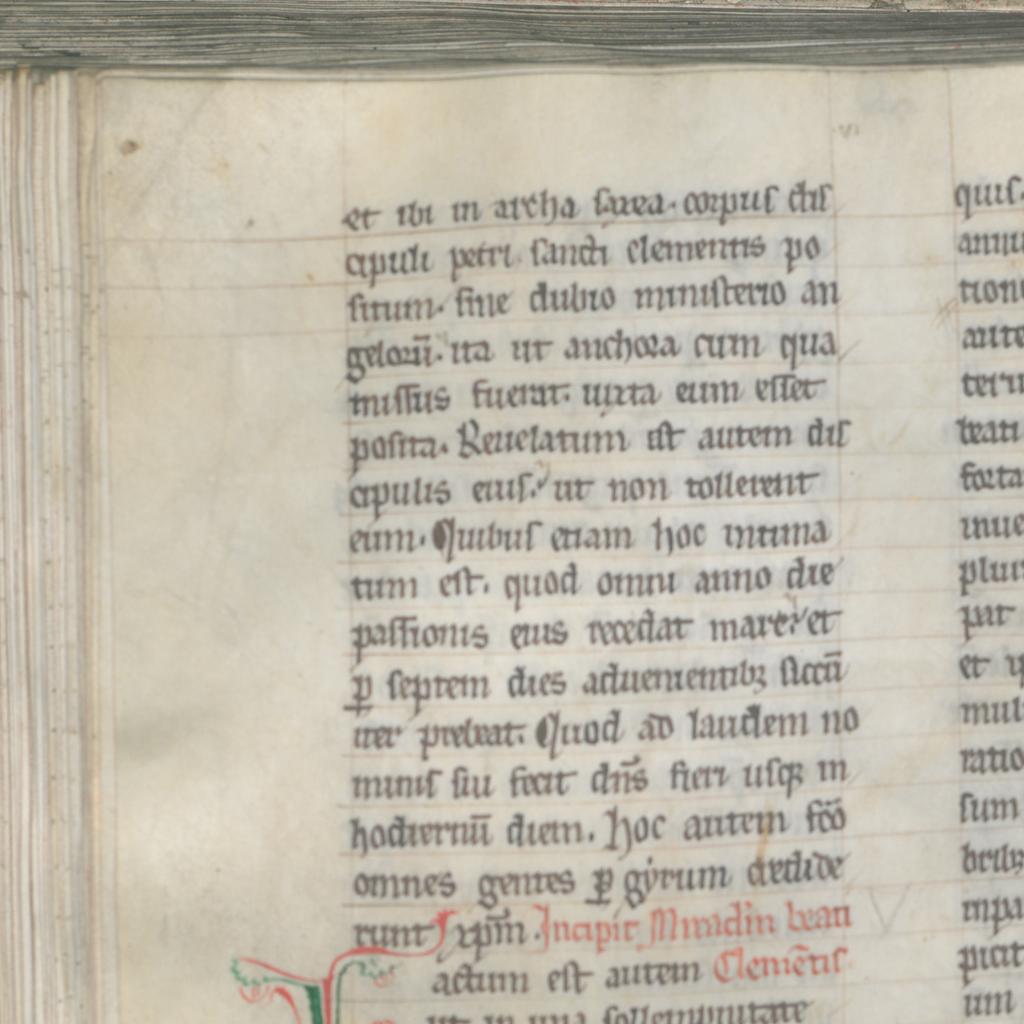 et ibi in archa saxea. corpus dis
cipuli petri sancti clementis po
situm. sine dubio ministerio an
gelorū. ita ut anchora cum qua
missus fuerat. iuxta eum esset
posita. Reuelatum est autem dis
cipulis eius. ut non tollerent
eum. Quibus etiam hoc intima
tum est. quod omni anno die
passionis eius recedat mare. et
ꝑ septem dies aduenientibꝫ siccū
iter prebeat. Quod ad laudem no
minis sui fecit dn̄s fieri usqꝫ in
hodiernū diem. Hoc autem fc̄o
omnes gentes ꝑ gyrum credide
runt xp̄m. Incipit Miraclm̄ beati
actum est autem Clemētis
ut in una sollempnitate
quis.
tion
aute
teru
beati
forta
inue
plur
pit
et
mul
ratio
sum
bribꝫ
inpa
picit
um